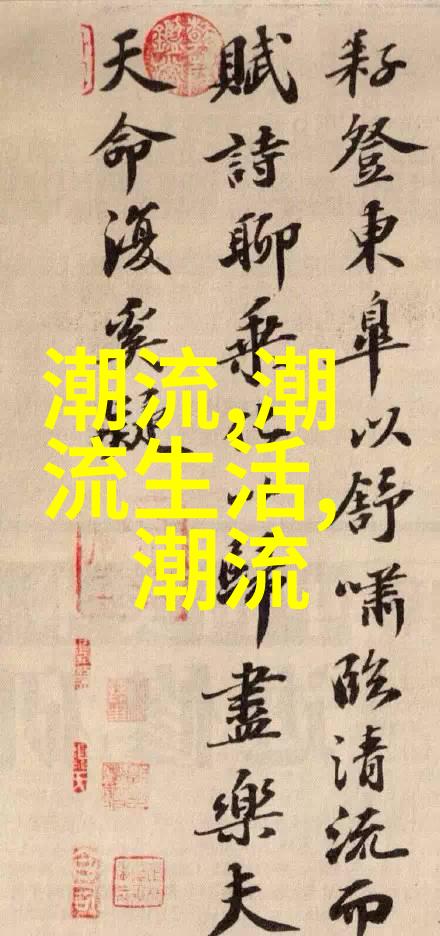 耔登東皐以舒嘯臨清流而
賦詩聊乗化以歸盡樂夫
天命復奚疑
潮流,潮
流生活,
潮流